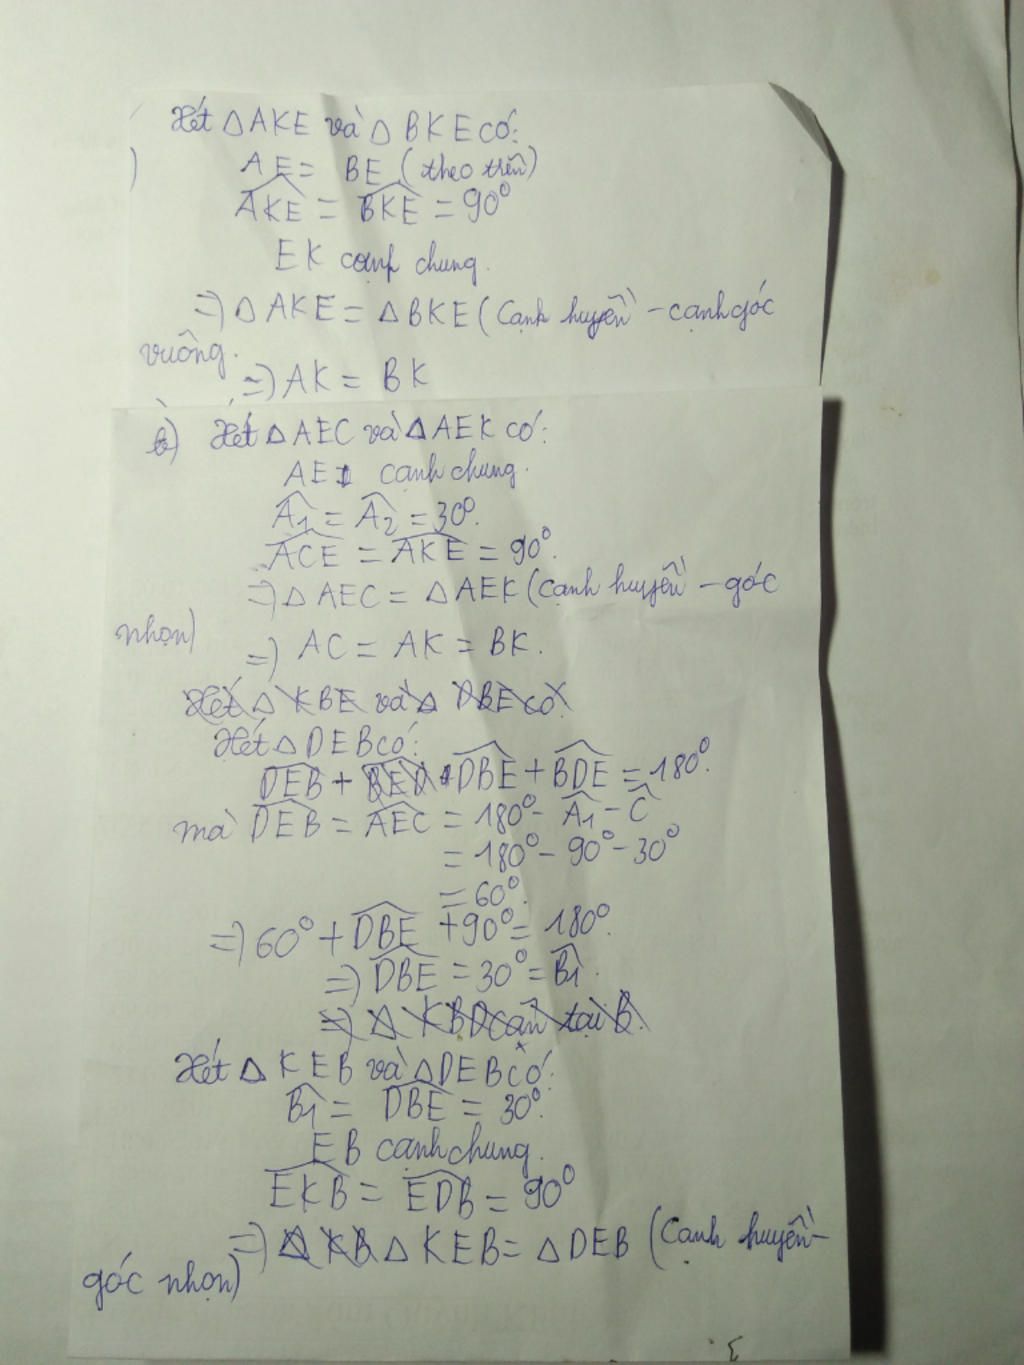 Xét △AKE và △BKE có:
)
AE = BE (theo trên)
AKE = BKE = 90°
EK cạnh chung.
=> △AKE = △BKE (Cạnh huyền - cạnh góc
vuông.
=> AK = BK
b) Xét △AEC và △AEK có:
AE cạnh chung.
A1 = A2 = 30°.
ACE = AKE = 90°.
=> △AEC = △AEK (cạnh huyền - góc
nhọn)
=> AC = AK = BK.
Xét △KBE và △DBE có:
Xét △DEB có:
DEB + BED + DBE + BDE = 180°.
mà DEB = AEC = 180° - A1 - C
= 180° - 90° - 30°
= 60°.
=> 60° + DBE + 90° = 180°.
=> DBE = 30° = B1.
=> △KBD cân tại B.
Xét △KEB và △DEB có:
B1 = DBE = 30°.
EB cạnh chung.
EKB = EDB = 90°
=> △KB △KEB = △DEB (Cạnh huyền -
góc nhọn)